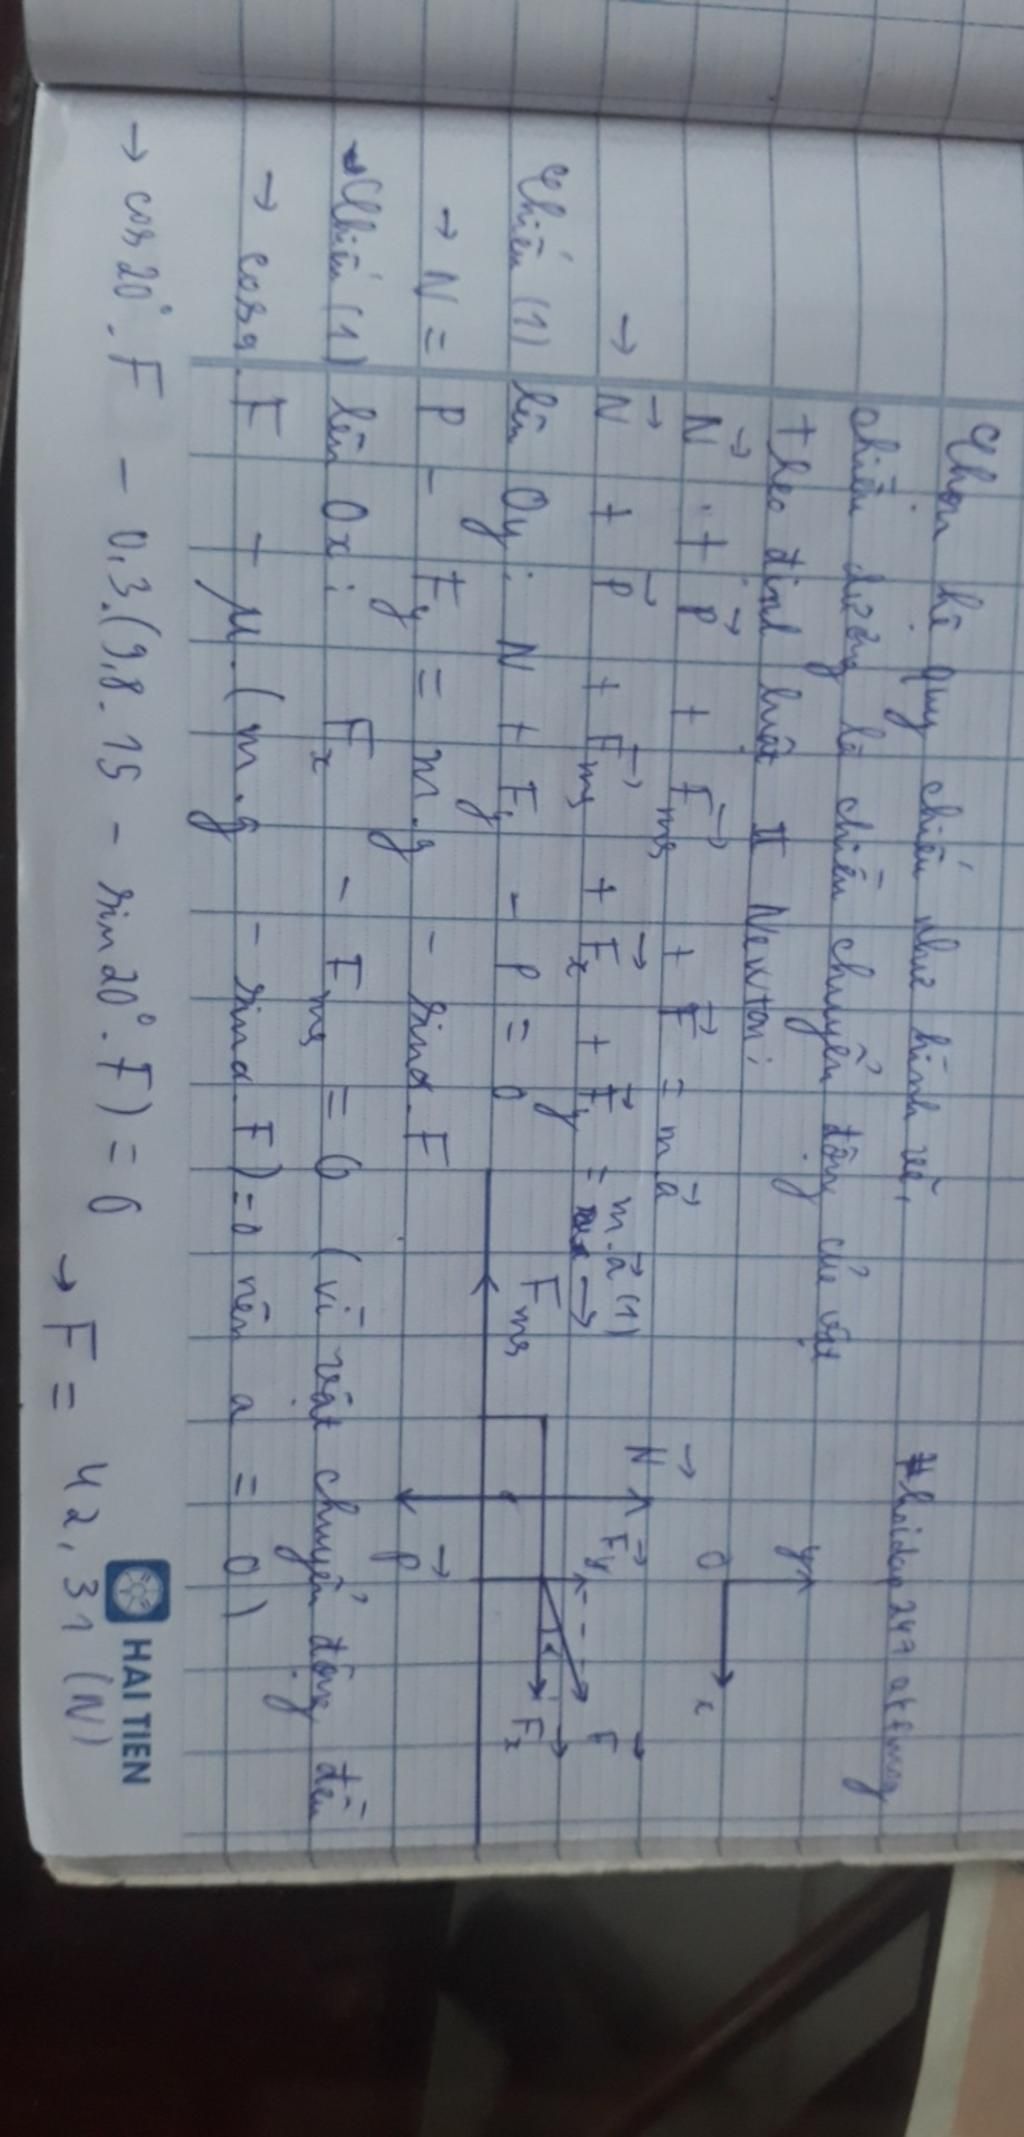 Chọn hệ quy chiếu như hình vẽ,
chiều dương là chiều chuyển động của vật
#hoidap247
Theo định luật II Newton:
N⃗ + P⃗ + F⃗ms + F⃗ = m.a⃗
→ N⃗ + P⃗ + F⃗ms + F⃗x + F⃗y = m.a⃗ (1)
Chiếu (1) lên Oy: N + Fy - P = 0
→ N = P - Fy = m.g - sinα.F
Chiếu (1) lên Ox: Fx - Fms = 0 (vì vật chuyển động đều
→ cosα.F - μ.(m.g - sinα.F) = 0 nên a = 0)
→ cos20°.F - 0,3.(9,8.15 - sin20°.F) = 0
→ F = 42,31 (N)
y
O
x
N⃗
F⃗y
F⃗
F⃗ms
α
F⃗x
P⃗
HAI TIEN